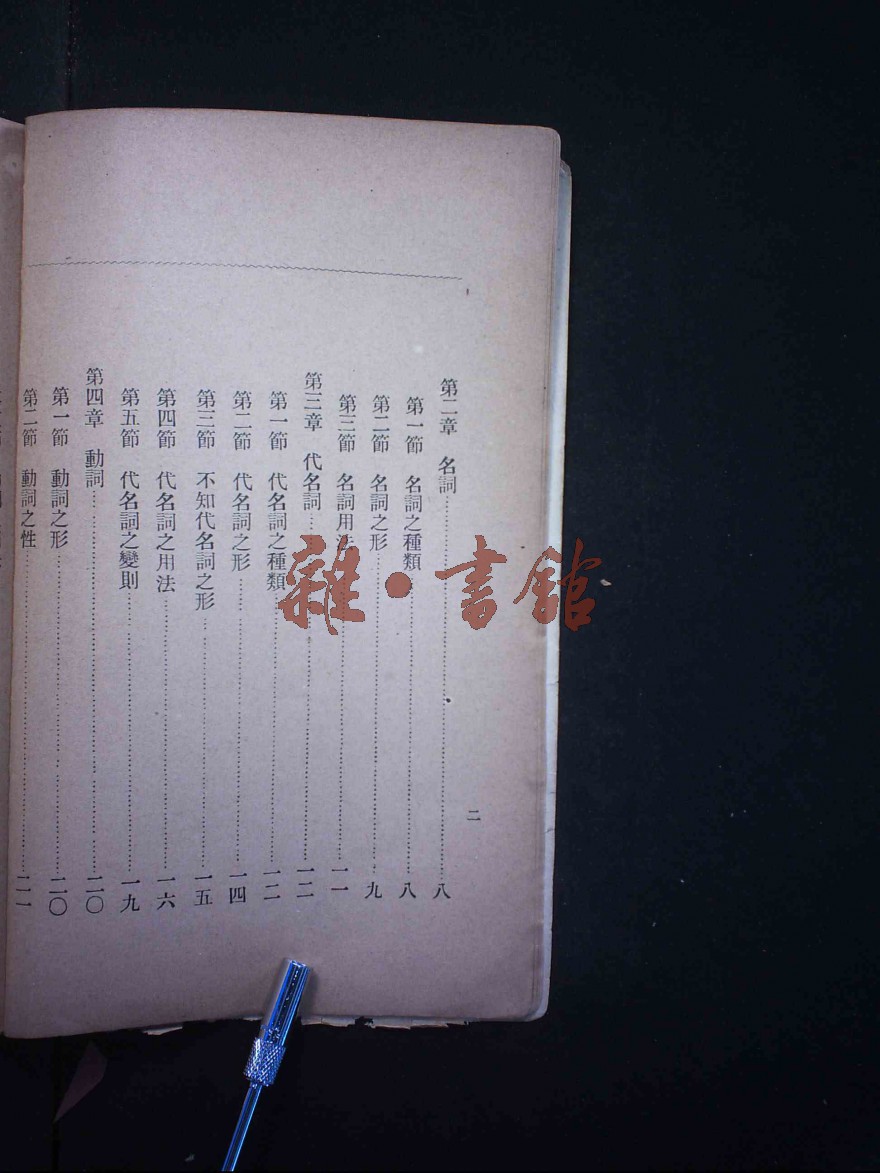 第二章　名詞……八
第一節　名詞之種類……八
第二節　名詞之形……九
第三節　名詞用法……一一
第三章　代名詞……一二
第一節　代名詞之種類……一二
第二節　代名詞之形……一四
第三節　不知代名詞之形……一五
第四節　代名詞之用法……一六
第五節　代名詞之變則……一九
第四章　動詞……二〇
第一節　動詞之形……二〇
第二節　動詞之性……二一
二
雜·書館